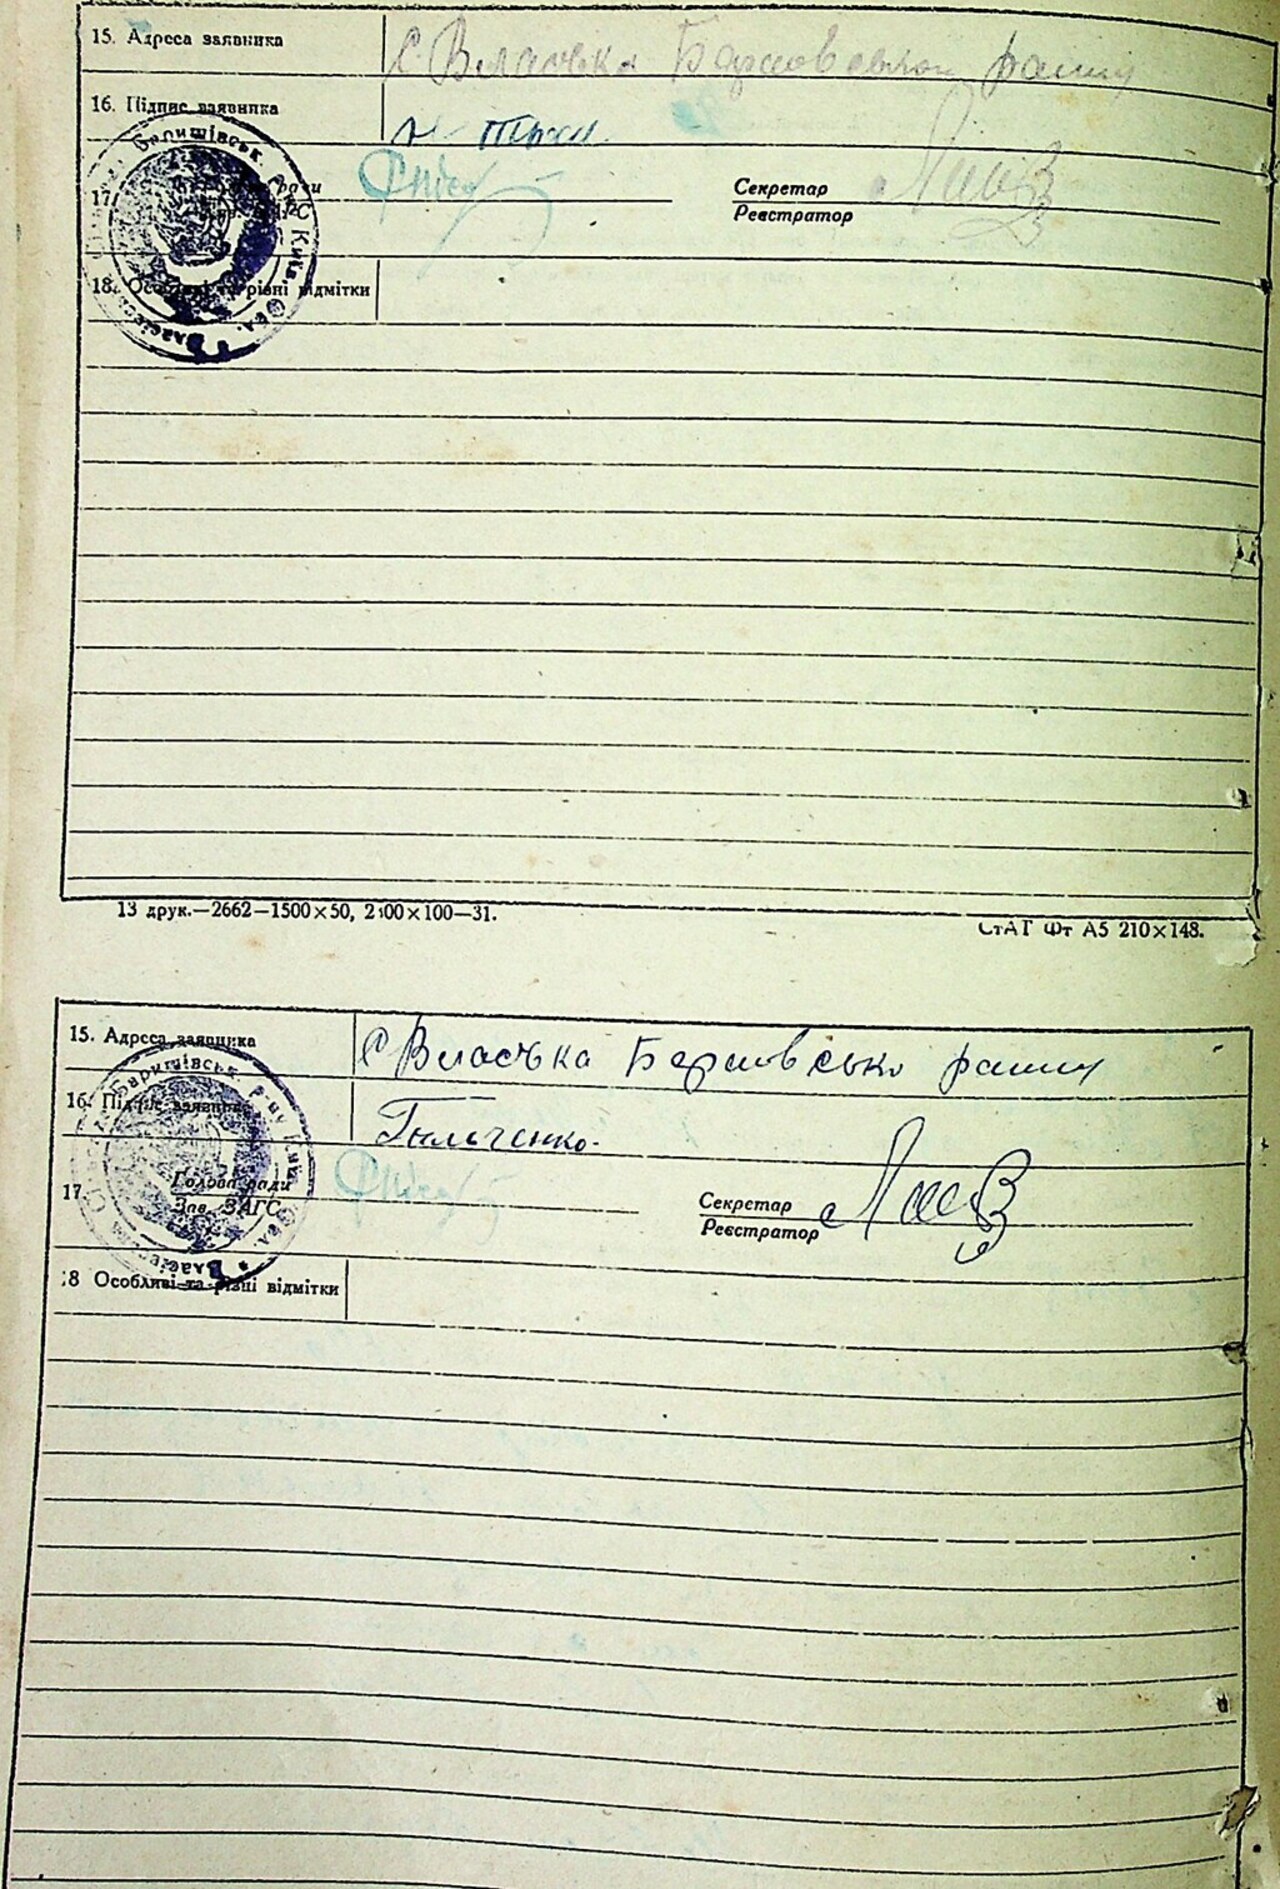 15. Адреса заявника
с. Власівка Баришовського району
16. Підпис заявника
17.
Секретар
Реєстратор
18. Особливі та різні відмітки
13 друк.—2662—1500×50, 2300×100—31.
СтАТ Фт А5 210×148.
15. Адреса заявника
с Власівка Баришовсько району
16. Підпис заявника
Гильченко.
17.
Голова ради
Зав. ЗАГС
Секретар
Реєстратор
18 Особливі та різні відмітки